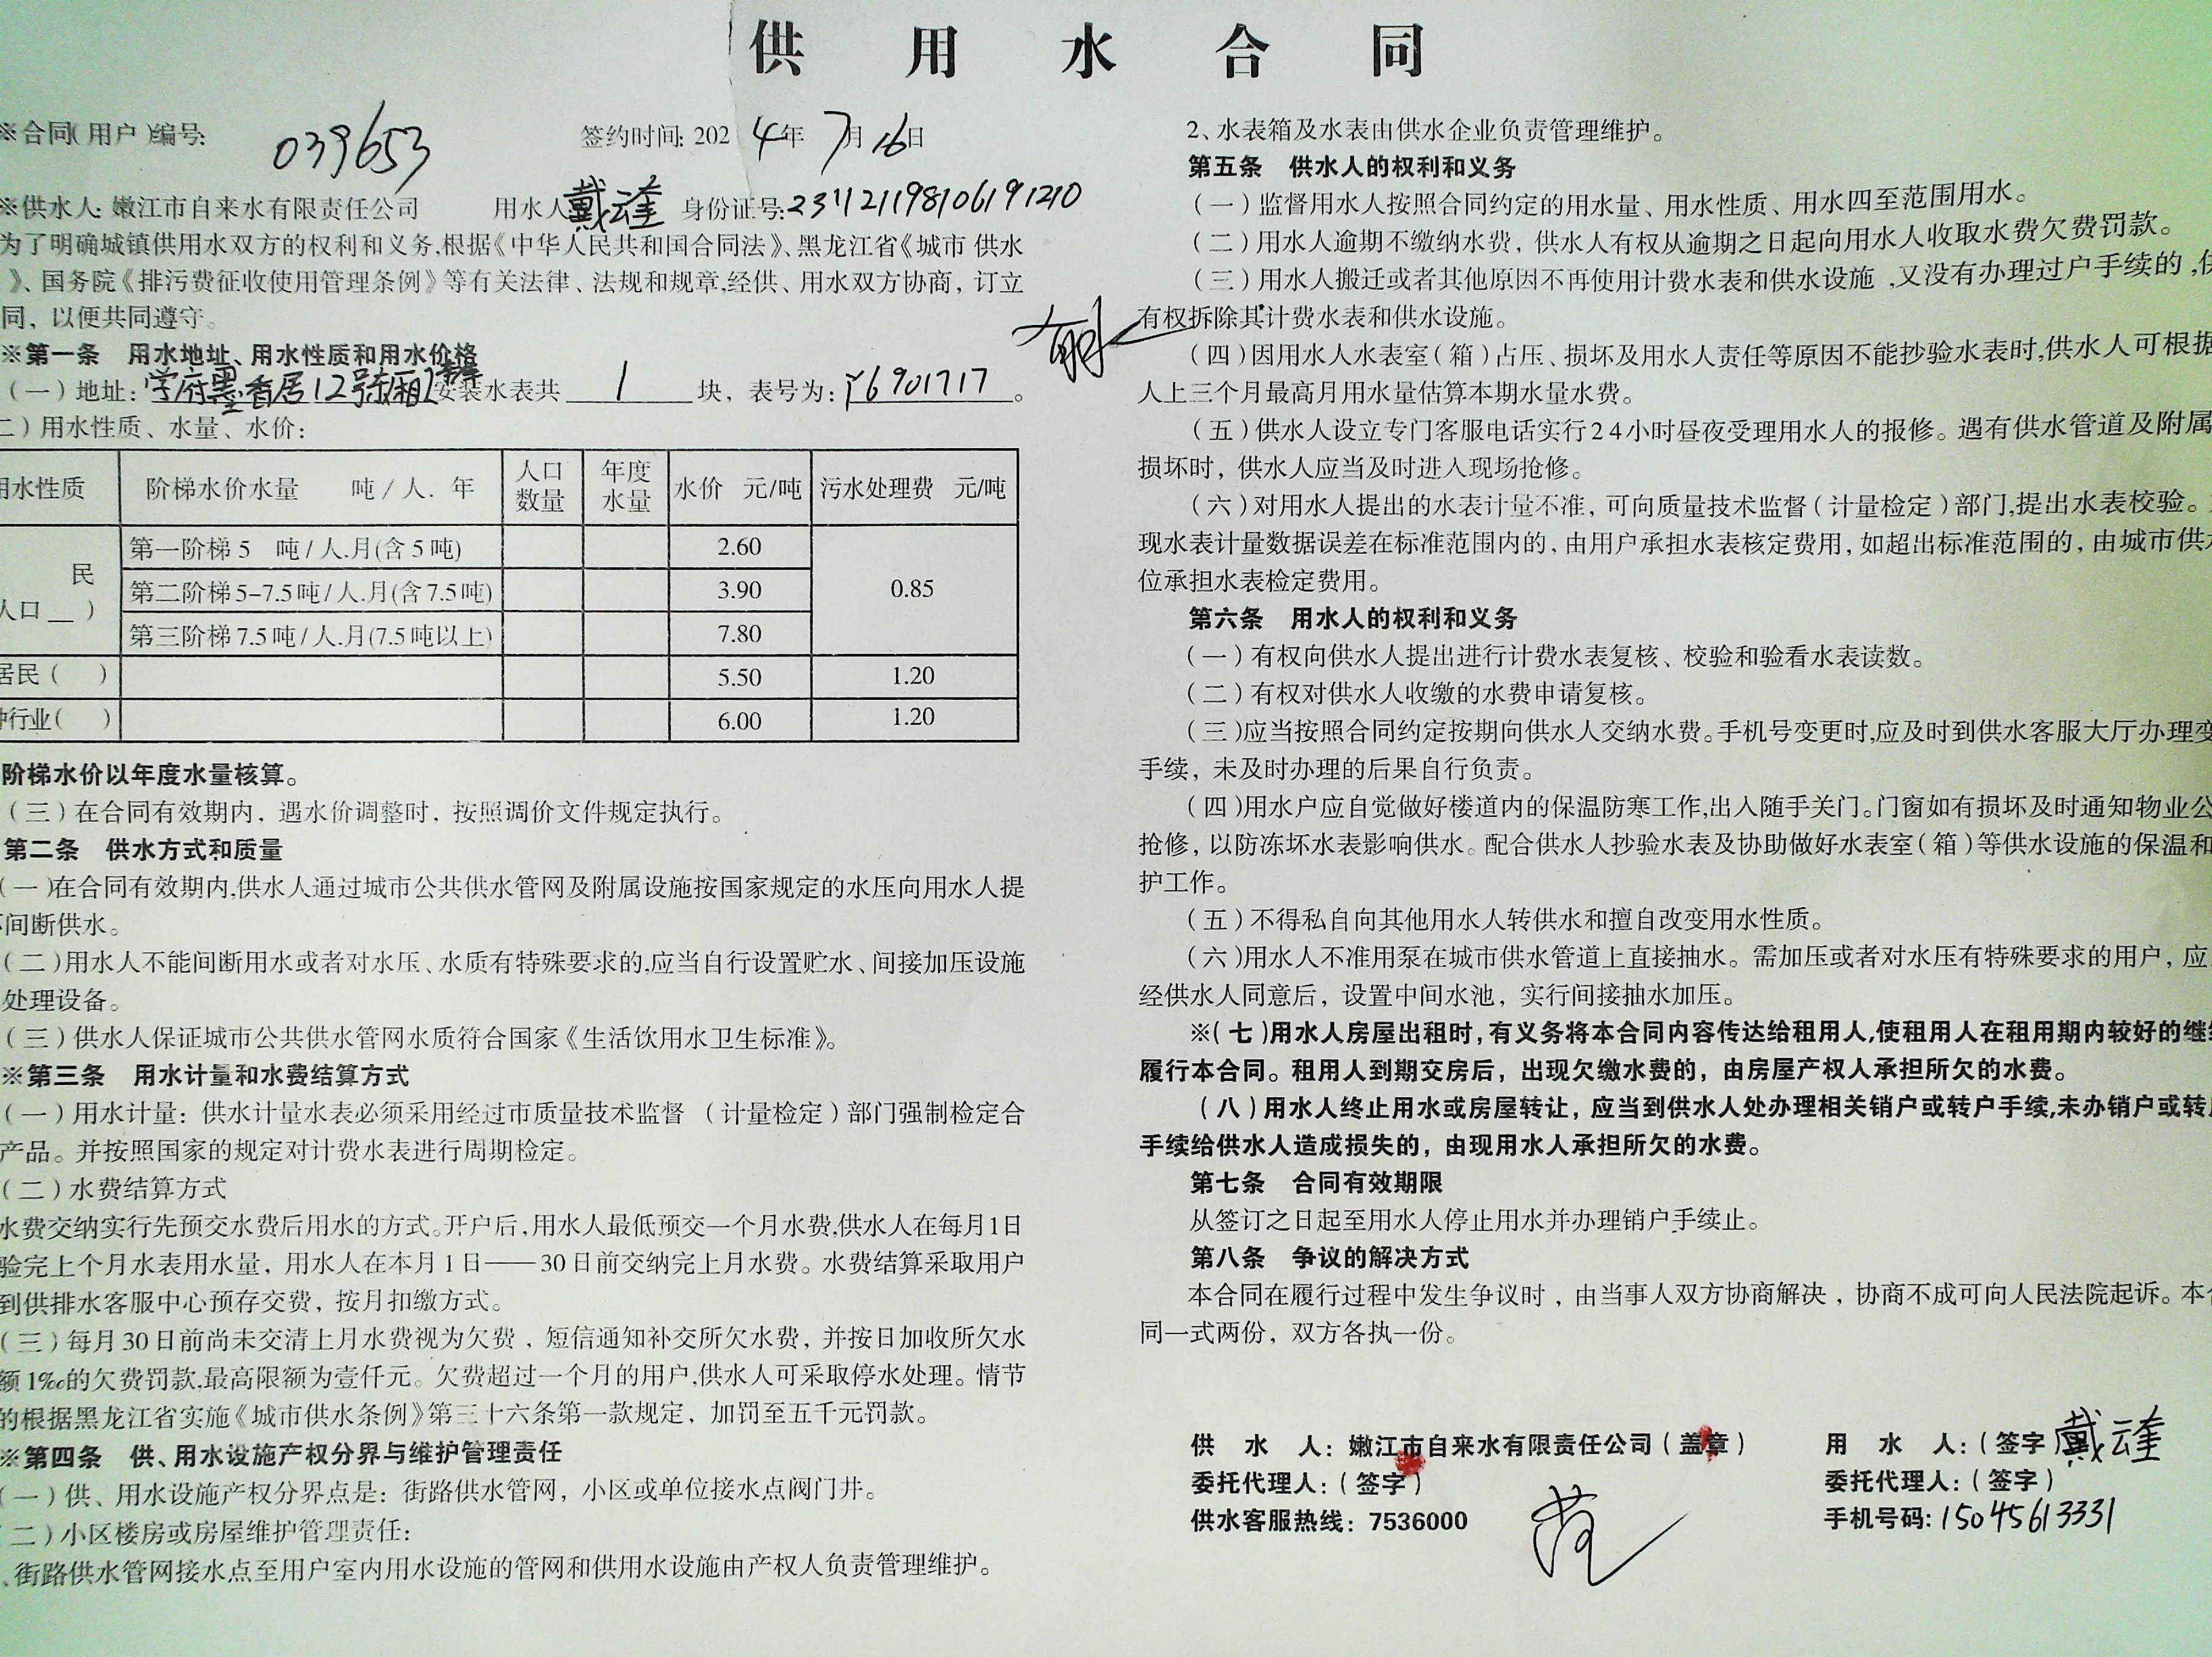 供用水合同
※合同(用户)编号: 039653 签约时间: 2024年7月16日
※供水人: 嫩江市自来水有限责任公司 用水人 戴云奎 身份证号: 231121198106191210
为了明确城镇供用水双方的权利和义务,根据《中华人民共和国合同法》、黑龙江省《城市 供水
》、国务院《排污费征收使用管理条例》等有关法律、法规和规章,经供、用水双方协商,订立
同,以便共同遵守。
※第一条 用水地址、用水性质和用水价格
(一)地址: 学府墨香居12号 安装水表共 1 块,表号为: 6901717。
二)用水性质、水量、水价:
用水性质 阶梯水价水量 吨/人.年 人口数量 年度水量 水价 元/吨 污水处理费 元/吨
民
人口__)
第一阶梯5 吨/人.月(含5吨) 2.60
第二阶梯5-7.5吨/人.月(含7.5吨) 3.90 0.85
第三阶梯7.5吨/人.月(7.5吨以上) 7.80
居民( ) 5.50 1.20
种行业( ) 6.00 1.20
阶梯水价以年度水量核算。
(三)在合同有效期内,遇水价调整时,按照调价文件规定执行。
第二条 供水方式和质量
(一)在合同有效期内,供水人通过城市公共供水管网及附属设施按国家规定的水压向用水人提
不间断供水。
(二)用水人不能间断用水或者对水压、水质有特殊要求的,应当自行设置贮水、间接加压设施
处理设备。
(三)供水人保证城市公共供水管网水质符合国家《生活饮用水卫生标准》。
※第三条 用水计量和水费结算方式
(一)用水计量:供水计量水表必须采用经过市质量技术监督 (计量检定)部门强制检定合
产品。并按照国家的规定对计费水表进行周期检定。
(二)水费结算方式
水费交纳实行先预交水费后用水的方式。开户后,用水人最低预交一个月水费,供水人在每月1日
验完上个月水表用水量,用水人在本月1日——30日前交纳完上月水费。水费结算采取用户
到供排水客服中心预存交费,按月扣缴方式。
(三)每月30日前尚未交清上月水费视为欠费,短信通知补交所欠水费,并按日加收所欠水
额1‰的欠费罚款,最高限额为壹仟元。欠费超过一个月的用户,供水人可采取停水处理。情节
的根据黑龙江省实施《城市供水条例》第三十六条第一款规定,加罚至五千元罚款。
※第四条 供、用水设施产权分界与维护管理责任
(一)供、用水设施产权分界点是:街路供水管网,小区或单位接水点阀门井。
二)小区楼房或房屋维护管理责任:
、街路供水管网接水点至用户室内用水设施的管网和供用水设施由产权人负责管理维护。
2、水表箱及水表由供水企业负责管理维护。
第五条 供水人的权利和义务
(一)监督用水人按照合同约定的用水量、用水性质、用水四至范围用水。
(二)用水人逾期不缴纳水费,供水人有权从逾期之日起向用水人收取水费欠费罚款。
(三)用水人搬迁或者其他原因不再使用计费水表和供水设施,又没有办理过户手续的,供
有权拆除其计费水表和供水设施。
(四)因用水人水表室(箱)占压、损坏及用水人责任等原因不能抄验水表时,供水人可根据
人上三个月最高月用水量估算本期水量水费。
(五)供水人设立专门客服电话实行24小时昼夜受理用水人的报修。遇有供水管道及附属
损坏时,供水人应当及时进入现场抢修。
(六)对用水人提出的水表计量不准,可向质量技术监督(计量检定)部门,提出水表校验。
现水表计量数据误差在标准范围内的,由用户承担水表核定费用,如超出标准范围的,由城市供水
位承担水表检定费用。
第六条 用水人的权利和义务
(一)有权向供水人提出进行计费水表复核、校验和验看水表读数。
(二)有权对供水人收缴的水费申请复核。
(三)应当按照合同约定按期向供水人交纳水费。手机号变更时,应及时到供水客服大厅办理变
手续,未及时办理的后果自行负责。
(四)用水户应自觉做好楼道内的保温防寒工作,出入随手关门。门窗如有损坏及时通知物业公
抢修,以防冻坏水表影响供水。配合供水人抄验水表及协助做好水表室(箱)等供水设施的保温和
护工作。
(五)不得私自向其他用水人转供水和擅自改变用水性质。
(六)用水人不准用泵在城市供水管道上直接抽水。需加压或者对水压有特殊要求的用户,应
经供水人同意后,设置中间水池,实行间接抽水加压。
※(七)用水人房屋出租时,有义务将本合同内容传达给租用人,使租用人在租用期内较好的继续
履行本合同。租用人到期交房后,出现欠缴水费的,由房屋产权人承担所欠的水费。
(八)用水人终止用水或房屋转让,应当到供水人处办理相关销户或转户手续,未办销户或转户
手续给供水人造成损失的,由现用水人承担所欠的水费。
第七条 合同有效期限
从签订之日起至用水人停止用水并办理销户手续止。
第八条 争议的解决方式
本合同在履行过程中发生争议时,由当事人双方协商解决,协商不成可向人民法院起诉。本合
同一式两份,双方各执一份。
供水人:嫩江市自来水有限责任公司(盖章) 用水人:(签字)戴云奎
委托代理人:(签字) 委托代理人:(签字)
供水客服热线:7536000 手机号码:15045613331